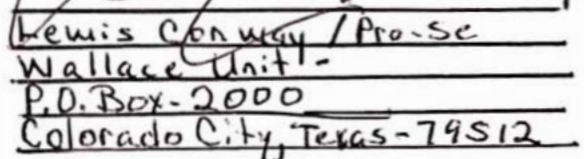 Lewis Conway / Pro-Se
Wallace Unit -
P.O. Box - 2000
Colorado City, Texas - 79512